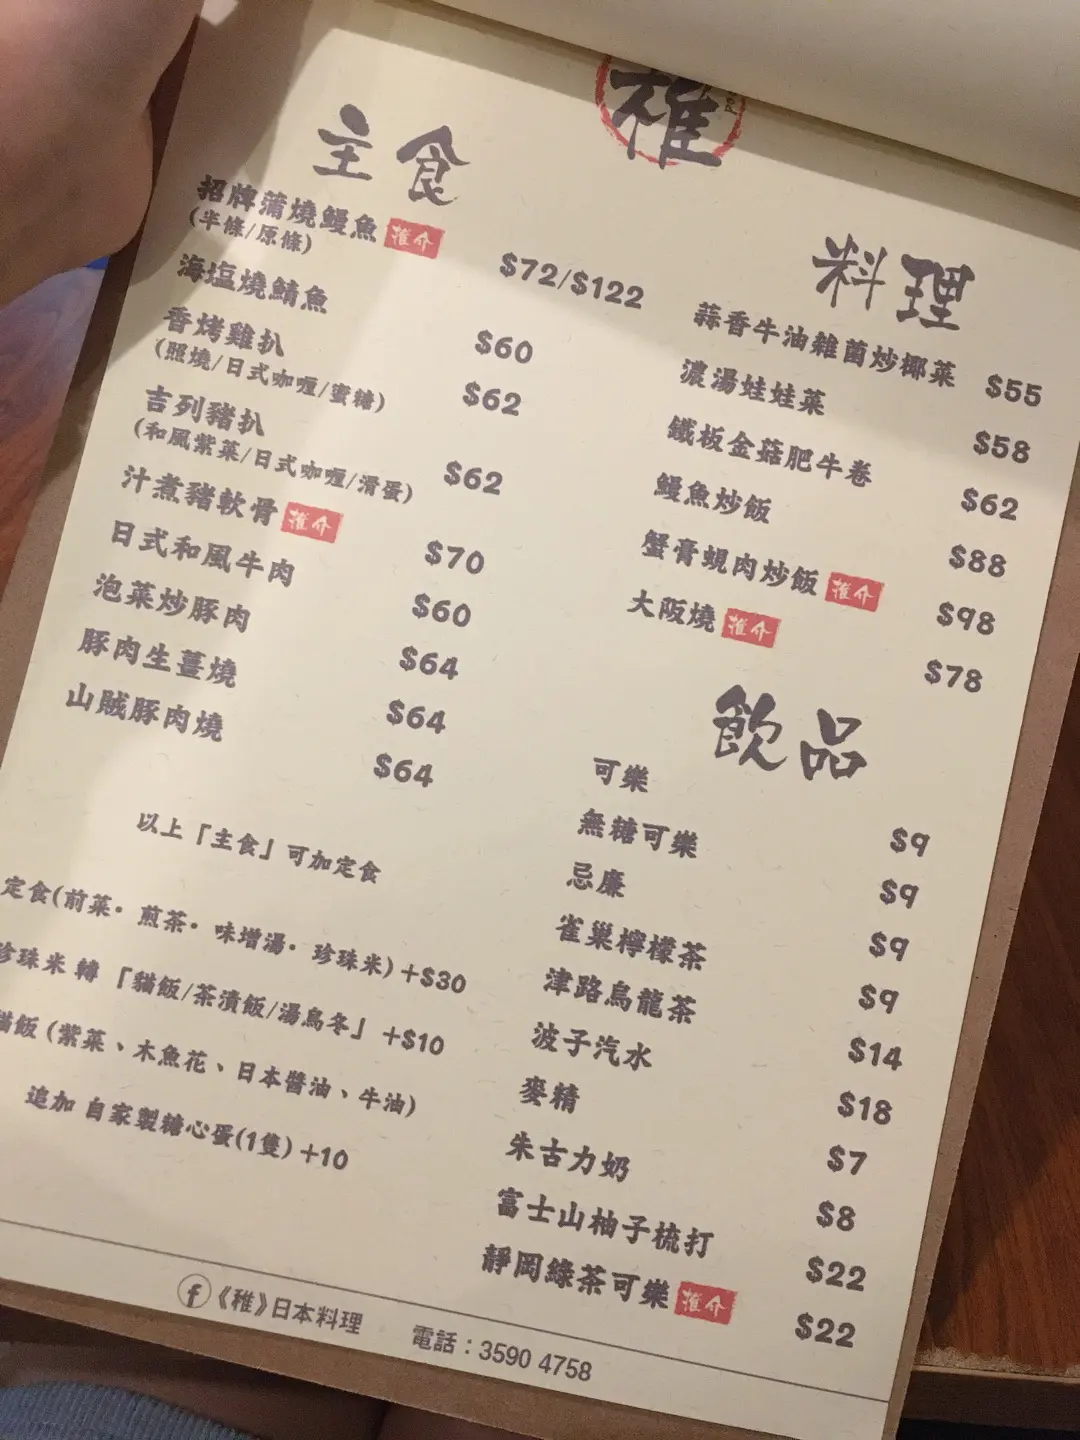 稚
主食
招牌蒲燒鰻魚 推介
(半條/原條)
$72/$122
海塩燒鯖魚
$60
香烤雞扒
(照燒/日式咖喱/蜜糖)
$62
吉列豬扒
(和風紫菜/日式咖喱/滑蛋)
$62
汁煮豬軟骨 推介
$70
日式和風牛肉
$60
泡菜炒豚肉
$64
豚肉生薑燒
$64
山賊豚肉燒
$64
以上「主食」可加定食
定食(前菜・煎茶・味增湯・珍珠米)+$30
珍珠米 轉 「貓飯/茶漬飯/湯烏冬」 +$10
貓飯 (紫菜、木魚花、日本醬油、牛油)
追加 自家製糖心蛋(1隻) +10
料理
蒜香牛油雜菌炒椰菜
$55
濃湯娃娃菜
$58
鐵板金菇肥牛卷
$62
鰻魚炒飯
$88
蟹膏蜆肉炒飯 推介
$98
大阪燒 推介
$78
飲品
可樂
$9
無糖可樂
$9
忌廉
$9
雀巢檸檬茶
$9
津路烏龍茶
$14
波子汽水
$18
麥精
$7
朱古力奶
$8
富士山柚子梳打
$22
靜岡綠茶可樂 推介
$22
f 《稚》日本料理 電話：3590 4758